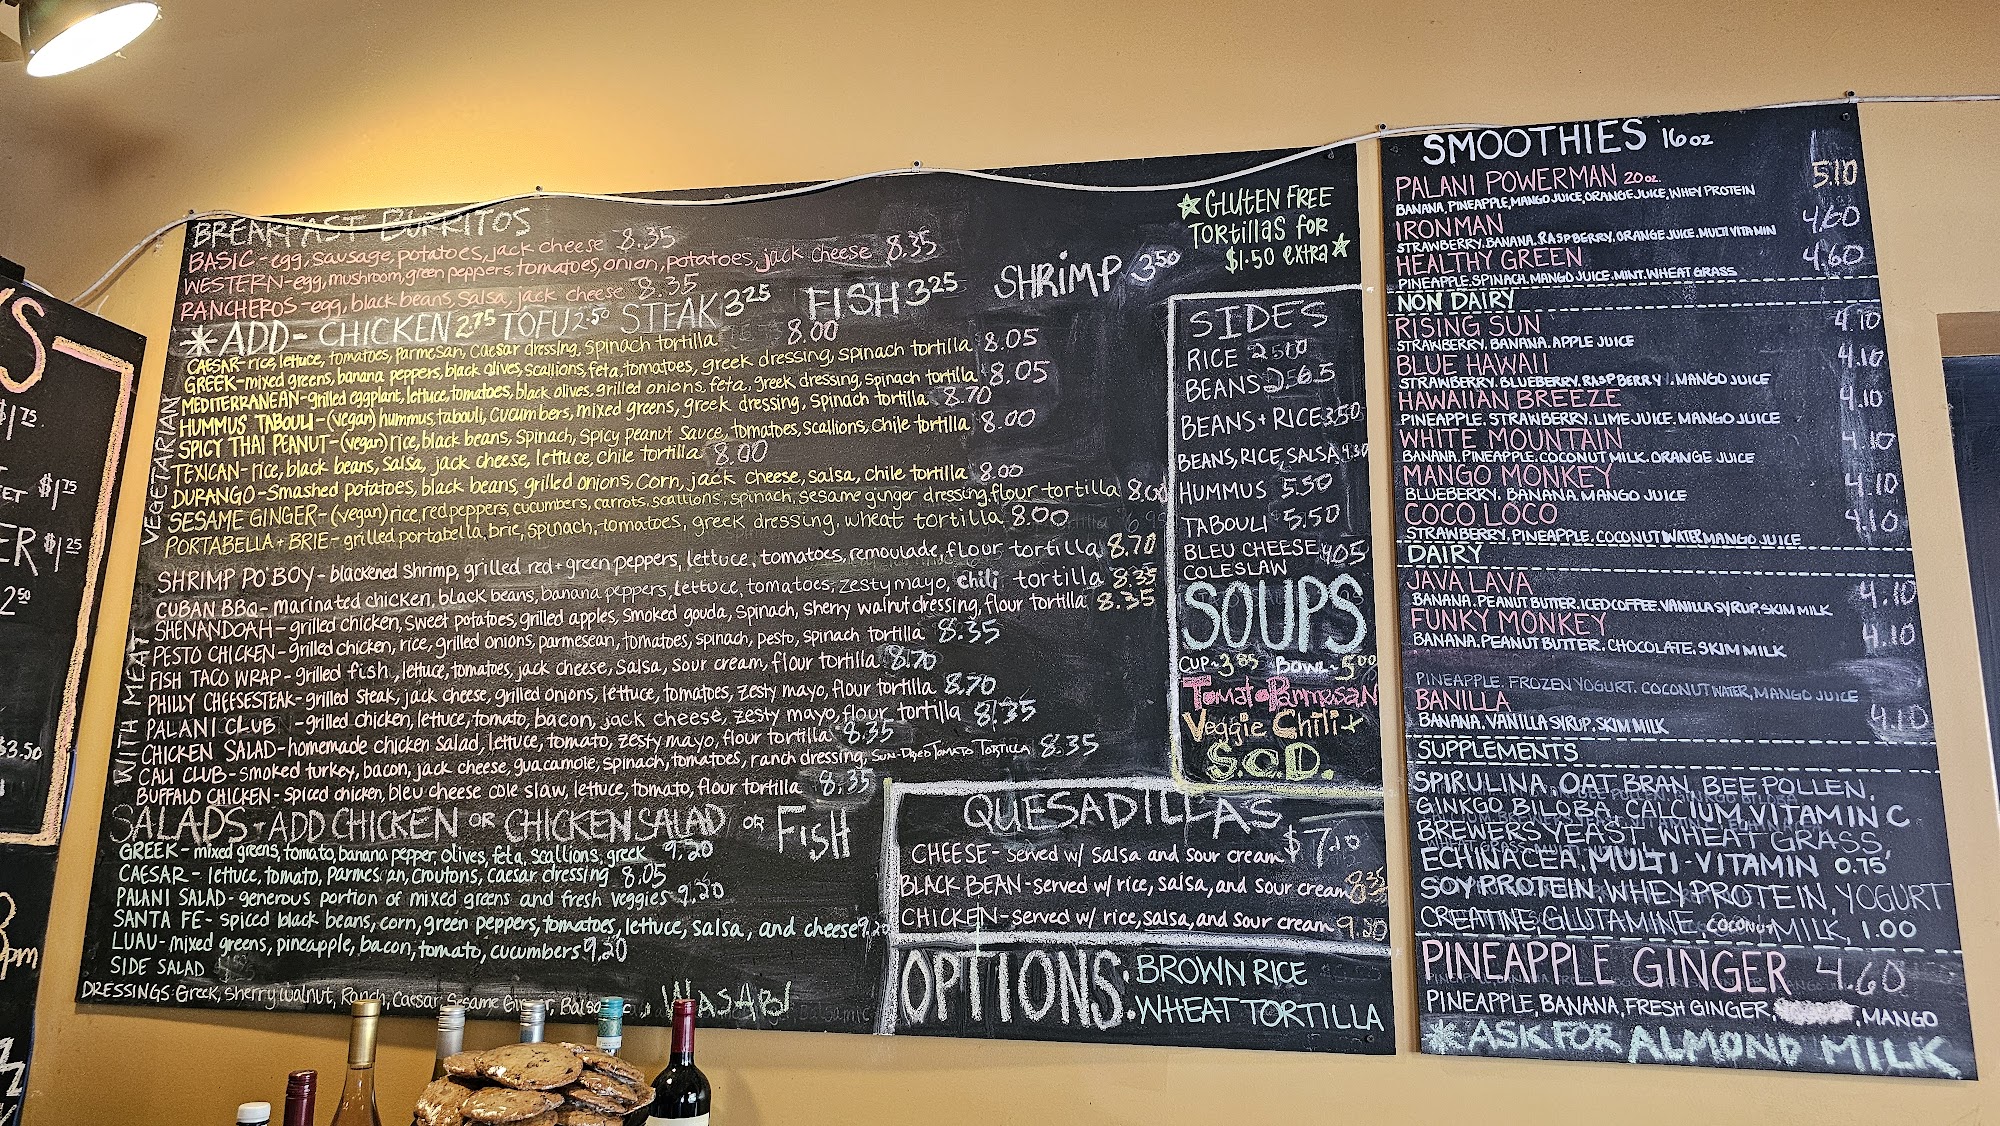 S
$1.75
EET $1.75
ER $1.25
2.50
$3.50
pm
BREAKFAST BURRITOS
BASIC - egg, sausage, potatoes, jack cheese 8.35
WESTERN - egg, mushroom, green peppers, tomatoes, onion, potatoes, jack cheese 8.35
RANCHEROS - egg, black beans, salsa, jack cheese 8.35
* ADD - CHICKEN 2.75 TOFU 2.50 STEAK 3.25 FISH 3.25 SHRIMP 3.50
VEGETARIAN
CAESAR - rice, lettuce, tomatoes, parmesan, caesar dressing, spinach tortilla 8.00
GREEK - mixed greens, banana peppers, black olives, scallions, feta, tomatoes, greek dressing, spinach tortilla 8.05
MEDITERRANEAN - grilled eggplant, lettuce, tomatoes, black olives, grilled onions, feta, greek dressing, spinach tortilla 8.05
HUMMUS TABOULI - (vegan) hummus, tabouli, cucumbers, mixed greens, greek dressing, spinach tortilla 8.70
SPICY THAI PEANUT - (vegan) rice, black beans, spinach, spicy peanut sauce, tomatoes, scallions, chile tortilla 8.00
TEXICAN - rice, black beans, salsa, jack cheese, lettuce, chile tortilla 8.00
DURANGO - smashed potatoes, black beans, grilled onions, corn, jack cheese, salsa, chile tortilla 8.00
SESAME GINGER - (vegan) rice, red peppers, cucumbers, carrots, scallions, spinach, sesame ginger dressing, flour tortilla 8.00
PORTABELLA + BRIE - grilled portabella, brie, spinach, tomatoes, greek dressing, wheat tortilla 8.00
WITH MEAT
SHRIMP PO'BOY - blackened shrimp, grilled red + green peppers, lettuce, tomatoes, remoulade, flour tortilla 8.70
CUBAN BBQ - marinated chicken, black beans, banana peppers, lettuce, tomatoes, zesty mayo, chili tortilla 8.35
SHENANDOAH - grilled chicken, sweet potatoes, grilled apples, smoked gouda, spinach, sherry walnut dressing, flour tortilla 8.35
PESTO CHICKEN - grilled chicken, rice, grilled onions, parmesean, tomatoes, spinach, pesto, spinach tortilla 8.35
FISH TACO WRAP - grilled fish, lettuce, tomatoes, jack cheese, salsa, sour cream, flour tortilla 8.70
PHILLY CHEESESTEAK - grilled steak, jack cheese, grilled onions, lettuce, tomatoes, zesty mayo, flour tortilla 8.70
PALANI CLUB - grilled chicken, lettuce, tomato, bacon, jack cheese, zesty mayo, flour tortilla 8.35
CHICKEN SALAD - homemade chicken salad, lettuce, tomato, zesty mayo, flour tortilla 8.35
CALI CLUB - smoked turkey, bacon, jack cheese, guacamole, spinach, tomatoes, ranch dressing, SUN-DRIED TOMATO TORTILLA 8.35
BUFFALO CHICKEN - spiced chicken, bleu cheese cole slaw, lettuce, tomato, flour tortilla 8.35
SALADS - ADD CHICKEN OR CHICKEN SALAD OR FISH
GREEK - mixed greens, tomato, banana pepper, olives, feta, scallions, greek 9.20
CAESAR - lettuce, tomato, parmesan, croutons, caesar dressing 8.05
PALANI SALAD - generous portion of mixed greens and fresh veggies 9.20
SANTA FE - spiced black beans, corn, green peppers, tomatoes, lettuce, salsa, and cheese 9.20
LUAU - mixed greens, pineapple, bacon, tomato, cucumbers 9.20
SIDE SALAD
DRESSINGS: Greek, Sherry Walnut, Ranch, Caesar, Sesame Ginger, WASABI
☆ GLUTEN FREE
Tortillas for
$1.50 extra ☆
SIDES
RICE
BEANS 2.65
BEANS + RICE 3.50
BEANS, RICE, SALSA 4.30
HUMMUS 5.50
TABOULI 5.50
BLEU CHEESE 4.05
COLESLAW
SOUPS
CUP ~ 3.85 BOWL ~ 5.00
Tomato Parmesan
Veggie Chili +
S.O.D.
QUESADILLAS
CHEESE - served w/ salsa and sour cream $7.20
BLACK BEAN - served w/ rice, salsa, and sour cream 8.35
CHICKEN - served w/ rice, salsa, and sour cream 9.20
OPTIONS: BROWN RICE
WHEAT TORTILLA
SMOOTHIES 16 oz
PALANI POWERMAN 20 oz. 5.10
BANANA, PINEAPPLE, MANGO JUICE, ORANGE JUICE, WHEY PROTEIN
IRONMAN 4.60
STRAWBERRY. BANANA. RASPBERRY. ORANGE JUICE. MULTI VITAMIN
HEALTHY GREEN 4.60
PINEAPPLE. SPINACH. MANGO JUICE. MINT. WHEAT GRASS
NON DAIRY
RISING SUN 4.10
STRAWBERRY. BANANA. APPLE JUICE
BLUE HAWAII 4.10
STRAWBERRY. BLUEBERRY. RASPBERRY. MANGO JUICE
HAWAIIAN BREEZE 4.10
PINEAPPLE. STRAWBERRY. LIME JUICE. MANGO JUICE
WHITE MOUNTAIN 4.10
BANANA. PINEAPPLE. COCONUT MILK. ORANGE JUICE
MANGO MONKEY 4.10
BLUEBERRY. BANANA. MANGO JUICE
COCO LOCO 4.10
STRAWBERRY. PINEAPPLE. COCONUT WATER MANGO JUICE
DAIRY
JAVA LAVA 4.10
BANANA. PEANUT BUTTER. ICED COFFEE. VANILLA SYRUP. SKIM MILK
FUNKY MONKEY 4.10
BANANA. PEANUT BUTTER. CHOCOLATE. SKIM MILK
PINEAPPLE. FROZEN YOGURT. COCONUT WATER, MANGO JUICE
BANILLA 4.10
BANANA. VANILLA SYRUP. SKIM MILK
SUPPLEMENTS
SPIRULINA, OAT BRAN, BEE POLLEN,
GINKGO BILOBA, CALCIUM, VITAMIN C
BREWERS YEAST, WHEAT GRASS,
ECHINACEA, MULTI-VITAMIN 0.75
SOY PROTEIN, WHEY PROTEIN, YOGURT
CREATINE, GLUTAMINE, COCONUT MILK, 1.00
PINEAPPLE GINGER 4.60
PINEAPPLE, BANANA, FRESH GINGER, , MANGO
* ASK FOR ALMOND MILK